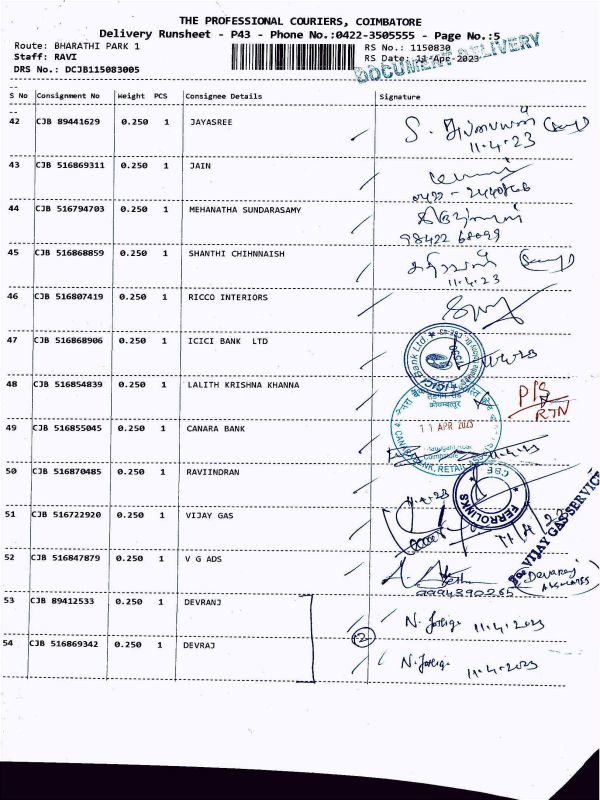 THE PROFESSIONAL COURIERS, COIMBATORE
Delivery Runsheet - P43 - Phone No.:0422-3505555 - Page No.:5
Route: BHARATHI PARK 1
RS No.: 1150830
Staff: RAVI
RS Date: 11-Apr-2023
DRS No.: DCJB115083005
DOCUMENT DELIVERY
S No Consignment No Weight PCS Consignee Details Signature
42 CJB 89441629 0.250 1 JAYASREE
11.4.23
43 CJB 516869311 1 JAIN 0.250
44 CJB 516794703 0.250 1 MEHANATHA SUNDARASAMY
45 CJB 516868859 0.250 1 SHANTHI CHIHNNAISH
11.4.23
46 CJB 516807419 0.250 1 RICCO INTERIORS
47 CJB 516868906 0.250 1 ICICI BANK LTD
ICICI Bank Ltd
48 CJB 516854839 0.250 1 LALITH KRISHNA KHANNA
RTN
49 CJB 516855045 0.250 1 CANARA BANK
11 APR 2023
50 CJB 516870485 0.250 1 RAVIINDRAN
FERROLINKS
CBE
51 CJB 516722920 0.250 1 VIJAY GAS
VIJAY GAS SERVICE
52 CJB 516847879 0.250 1 V G ADS
Devaraj
53 CJB 89412533 0.250 1 DEVRANJ
11.4.2023
2
54 CJB 516869342 0.250 1 DEVRAJ
11.4.2023